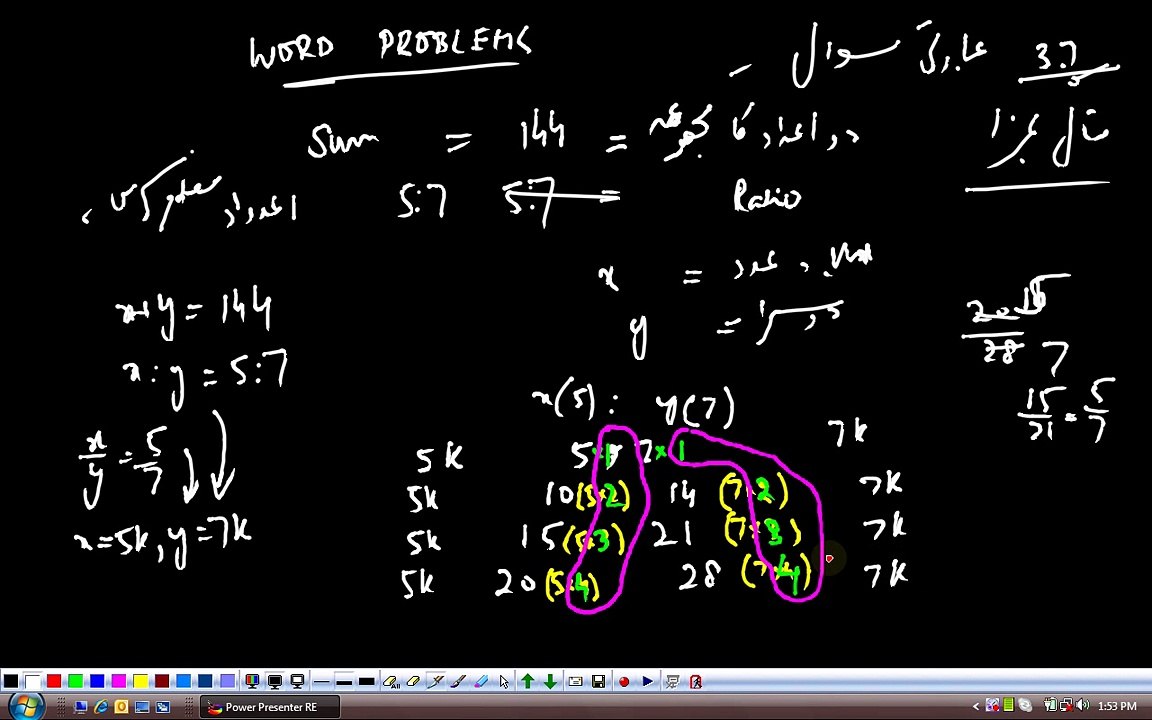 WORD PROBLEMS - عبارتی سوال 3.7
Sum = 144 = دو اعداد کا مجموعہ مثال نمبر 1
اعداد معلوم کریں 5:7 5:7 = Ratio
x = پہلا عدد
y = دوسرا
x+y = 144
x:y = 5:7
x/y = 5/7
x=5k, y=7k
20 15
28 7
15/21 = 5/7
x(5) : y(7)
5k 5×1 7×1 7k
5k 10(5×2) 14 (7×2) 7k
5k 15(5×3) 21 (7×3) 7k
5k 20(5×4) 28 (7×4) 7k
Power Presenter RE 1:53 PM